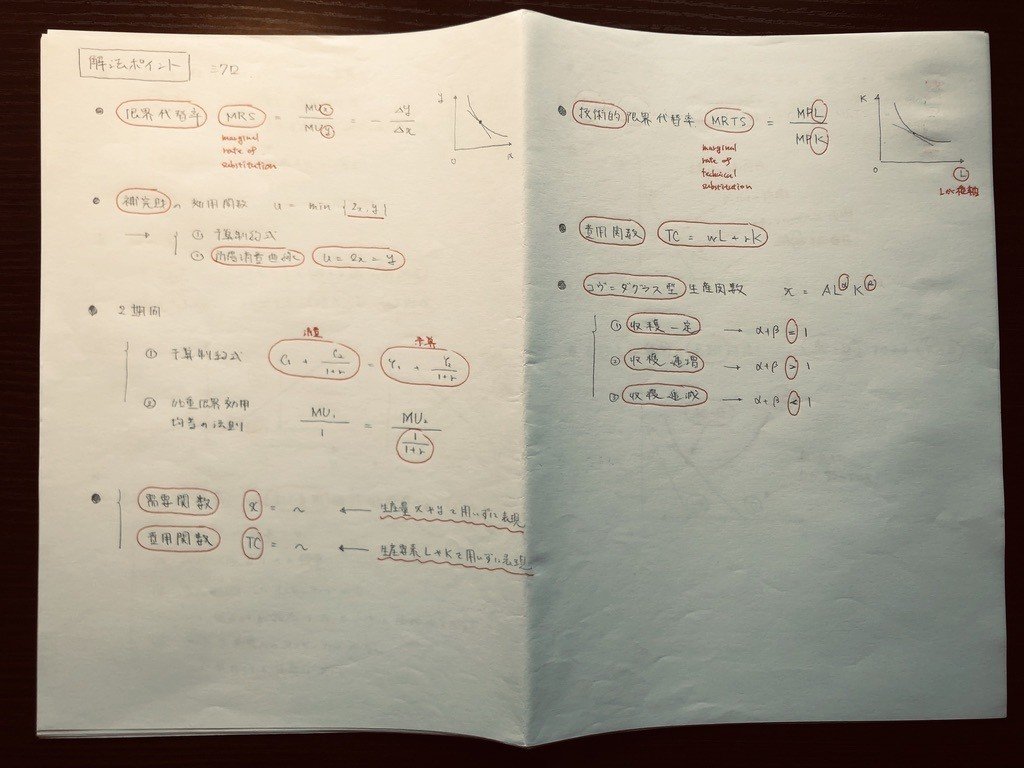 解法ポイント ミクロ
● 限界代替率 MRS = MUx / MUy = − Δy / Δx
marginal
rate of
substitution
y
0 x
● 補完財の効用関数 u = min {2x, y}
→ ① 予算制約式
② 所得消費曲線 u = 2x = y
● 2期間
消費 予算
① 予算制約式 C₁ + C₂ / 1+r = Y₁ + Y₂ / 1+r
② 加重限界効用
均等の法則 MU₁ / 1 = MU₂ / (1 / 1+r)
● 需要関数 x = 〜 ← 生産量xやyを用いずに表現
費用関数 TC = 〜 ← 生産要素LやKを用いずに表現
● 技術的限界代替率 MRTS = MPL / MPK
marginal
rate of
technical
substitution
K
0 L
Lが横軸
● 費用関数 TC = wL + rK
● コヴ=ダグラス型生産関数 x = AL^α K^β
① 収穫一定 → α+β = 1
② 収穫逓増 → α+β > 1
③ 収穫逓減 → α+β < 1